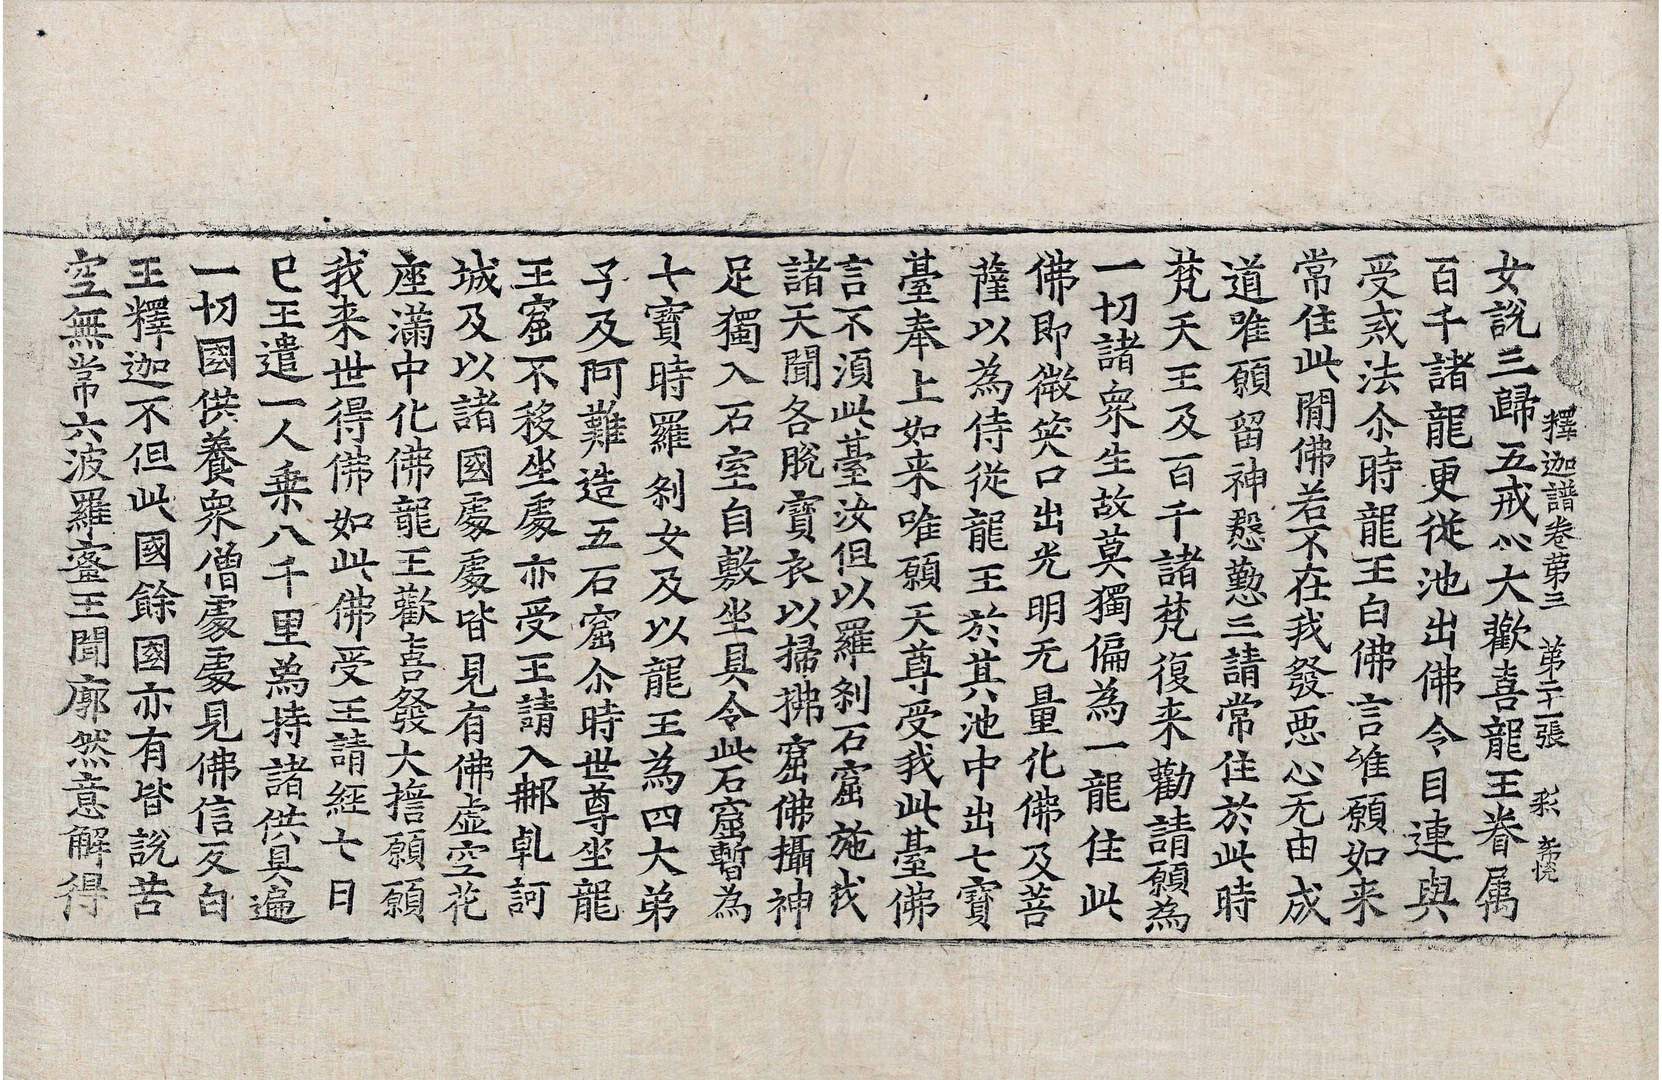 釋迦譜卷苐三 苐二十二張 彩
女說三歸五戒心大歡喜龍王眷属
百千諸龍更從池出佛令目連與
受戒法尒時龍王白佛言唯願如来
常住此閒佛若不在我發惡心无由成
道唯願留神慇懃三請常住於此時
梵天王及百千諸梵復来勸請願為
一切諸衆生故莫獨偏為一龍住此
佛即微笑口出光明无量化佛及菩
薩以為侍從龍王於其池中出七寶
臺奉上如来唯願天尊受我此臺佛
言不湏此臺汝但以羅刹石窟施我
諸天聞各脫寶衣以掃拂窟佛攝神
足獨入石室自敷坐具令此石窟暫為
七寶時羅刹女及以龍王為四大弟
子及阿難造五石窟尒時世尊坐龍
王窟不移坐處亦受王請入那乹訶
城及以諸國處處皆見有佛虚空花
座滿中化佛龍王歡喜發大擔願願
我来世得佛如此佛受王請經七日
已王遣一人乗八千里為持諸供具遍
一切國供養衆僧處處見佛信反白
王釋迦不但此國餘國亦有皆說苦
空無常六波羅蜜王聞廓然意解得